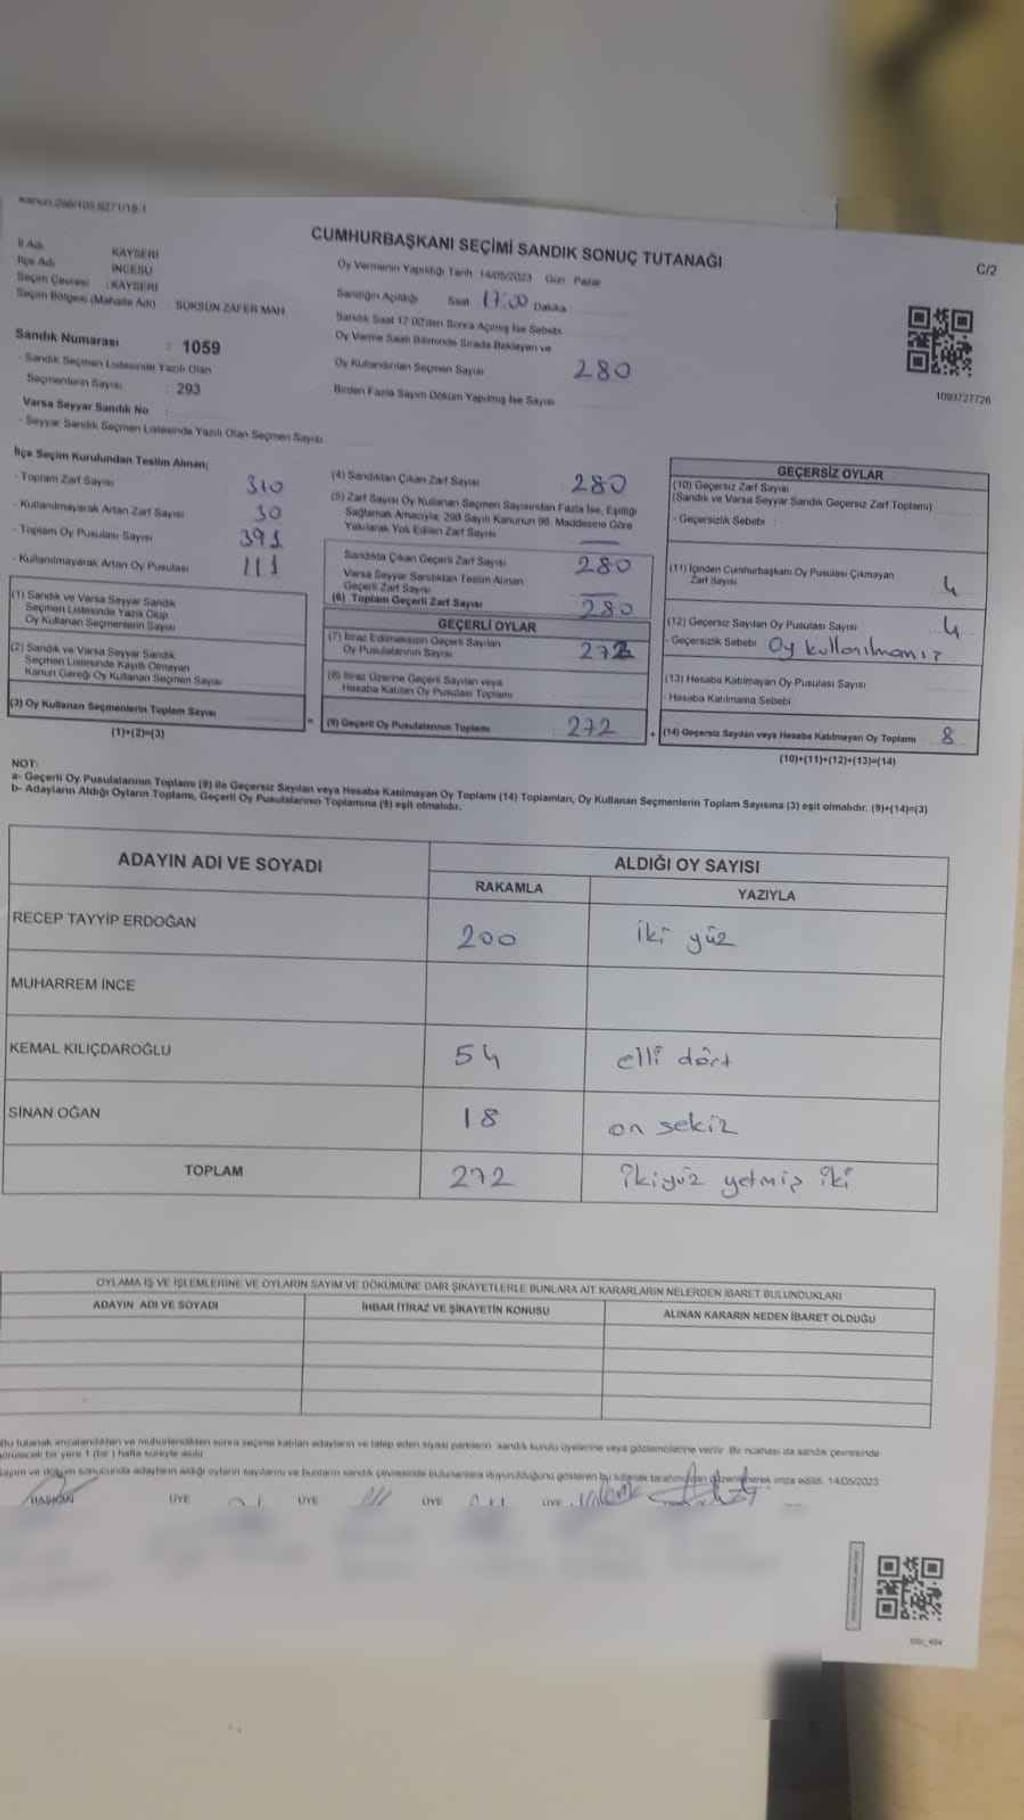 CUMHURBAŞKANI SEÇİMİ SANDIK SONUÇ TUTANAĞI
C/2
İl Adı : KAYSERİ
İlçe Adı : İNCESU
Seçim Çevresi : KAYSERİ
Seçim Bölgesi (Mahalle Adı) SÜKSÜN ZAFER MAH
Oy Vermenin Yapıldığı Tarih 14/05/2023 Gün Pazar
Sandığın Açıldığı Saat 17:00 Dakika
Sandık Saat 17.00'den Sonra Açılmış İse Sebebi
Oy Verme Saati Bitiminde Sırada Bekleyen ve
Oy Kullandırılan Seçmen Sayısı 280
Birden Fazla Sayım Döküm Yapılmış İse Sayısı
1093727726
Sandık Numarası : 1059
- Sandık Seçmen Listesinde Yazılı Olan
Seçmenlerin Sayısı : 293
Varsa Seyyar Sandık No :
- Seyyar Sandık Seçmen Listesinde Yazılı Olan Seçmen Sayısı
İlçe Seçim Kurulundan Teslim Alınan;
- Toplam Zarf Sayısı 310
- Kullanılmayarak Artan Zarf Sayısı 30
- Toplam Oy Pusulası Sayısı 391
- Kullanılmayarak Artan Oy Pusulası 111
(1) Sandık ve Varsa Seyyar Sandık
Seçmen Listesinde Yazılı Olup
Oy Kullanan Seçmenlerin Sayısı
(2) Sandık ve Varsa Seyyar Sandık
Seçmen Listesinde Kayıtlı Olmayan
Kanun Gereği Oy Kullanan Seçmen Sayısı
(3) Oy Kullanan Seçmenlerin Toplam Sayısı
(1)+(2)=(3)
(4) Sandıktan Çıkan Zarf Sayısı 280
(5) Zarf Sayısı Oy Kullanan Seçmen Sayısından Fazla İse, Eşitliği
Sağlamak Amacıyla, 298 Sayılı Kanunun 98. Maddesine Göre
Yakılarak Yok Edilen Zarf Sayısı
Sandıkta Çıkan Geçerli Zarf Sayısı 280
Varsa Seyyar Sandıktan Teslim Alınan
Geçerli Zarf Sayısı
(6) Toplam Geçerli Zarf Sayısı 280
GEÇERLİ OYLAR
(7) İtiraz Edilmeksizin Geçerli Sayılan
Oy Pusulalarının Sayısı 272
(8) İtiraz Üzerine Geçerli Sayılan veya
Hesaba Katılan Oy Pusulası Toplamı
= (9) Geçerli Oy Pusulalarının Toplamı 272
GEÇERSİZ OYLAR
(10) Geçersiz Zarf Sayısı
(Sandık ve Varsa Seyyar Sandık Geçersiz Zarf Toplamı)
- Geçersizlik Sebebi :
(11) İçinden Cumhurbaşkanı Oy Pusulası Çıkmayan
Zarf Sayısı 4
(12) Geçersiz Sayılan Oy Pusulası Sayısı 4
- Geçersizlik Sebebi Oy kullanılmamış
(13) Hesaba Katılmayan Oy Pusulası Sayısı
- Hesaba Katılmama Sebebi
+ (14) Geçersiz Sayılan veya Hesaba Katılmayan Oy Toplamı 8
(10)+(11)+(12)+(13)=(14)
NOT:
a- Geçerli Oy Pusulalarının Toplamı (9) ile Geçersiz Sayılan veya Hesaba Katılmayan Oy Toplamı (14) Toplamları, Oy Kullanan Seçmenlerin Toplam Sayısına (3) eşit olmalıdır. (9)+(14)=(3)
b- Adayların Aldığı Oyların Toplamı, Geçerli Oy Pusulalarının Toplamına (9) eşit olmalıdır.
ADAYIN ADI VE SOYADI
ALDIĞI OY SAYISI
RAKAMLA YAZIYLA
RECEP TAYYİP ERDOĞAN 200 iki yüz
MUHARREM İNCE
KEMAL KILIÇDAROĞLU 54 elli dört
SİNAN OĞAN 18 on sekiz
TOPLAM 272 ikiyüz yetmiş iki
OYLAMA İŞ VE İŞLEMLERİNE VE OYLARIN SAYIM VE DÖKÜMÜNE DAİR ŞİKAYETLERLE BUNLARA AİT KARARLARIN NELERDEN İBARET BULUNDUKLARI
ADAYIN ADI VE SOYADI
İHBAR İTİRAZ VE ŞİKAYETİN KONUSU
ALINAN KARARIN NEDEN İBARET OLDUĞU
BAŞKAN ÜYE ÜYE ÜYE ÜYE